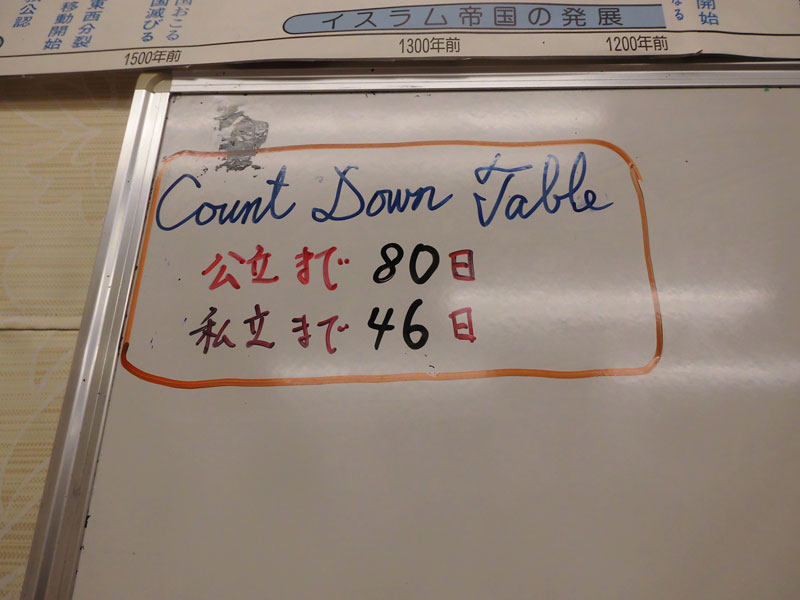 公認
東西分裂
移動開始
国おこる
国滅びる
イスラム帝国の発展
なる
開始
1500年前
1300年前
1200年前
Count Down Table
公立まで 80日
私立まで 46日